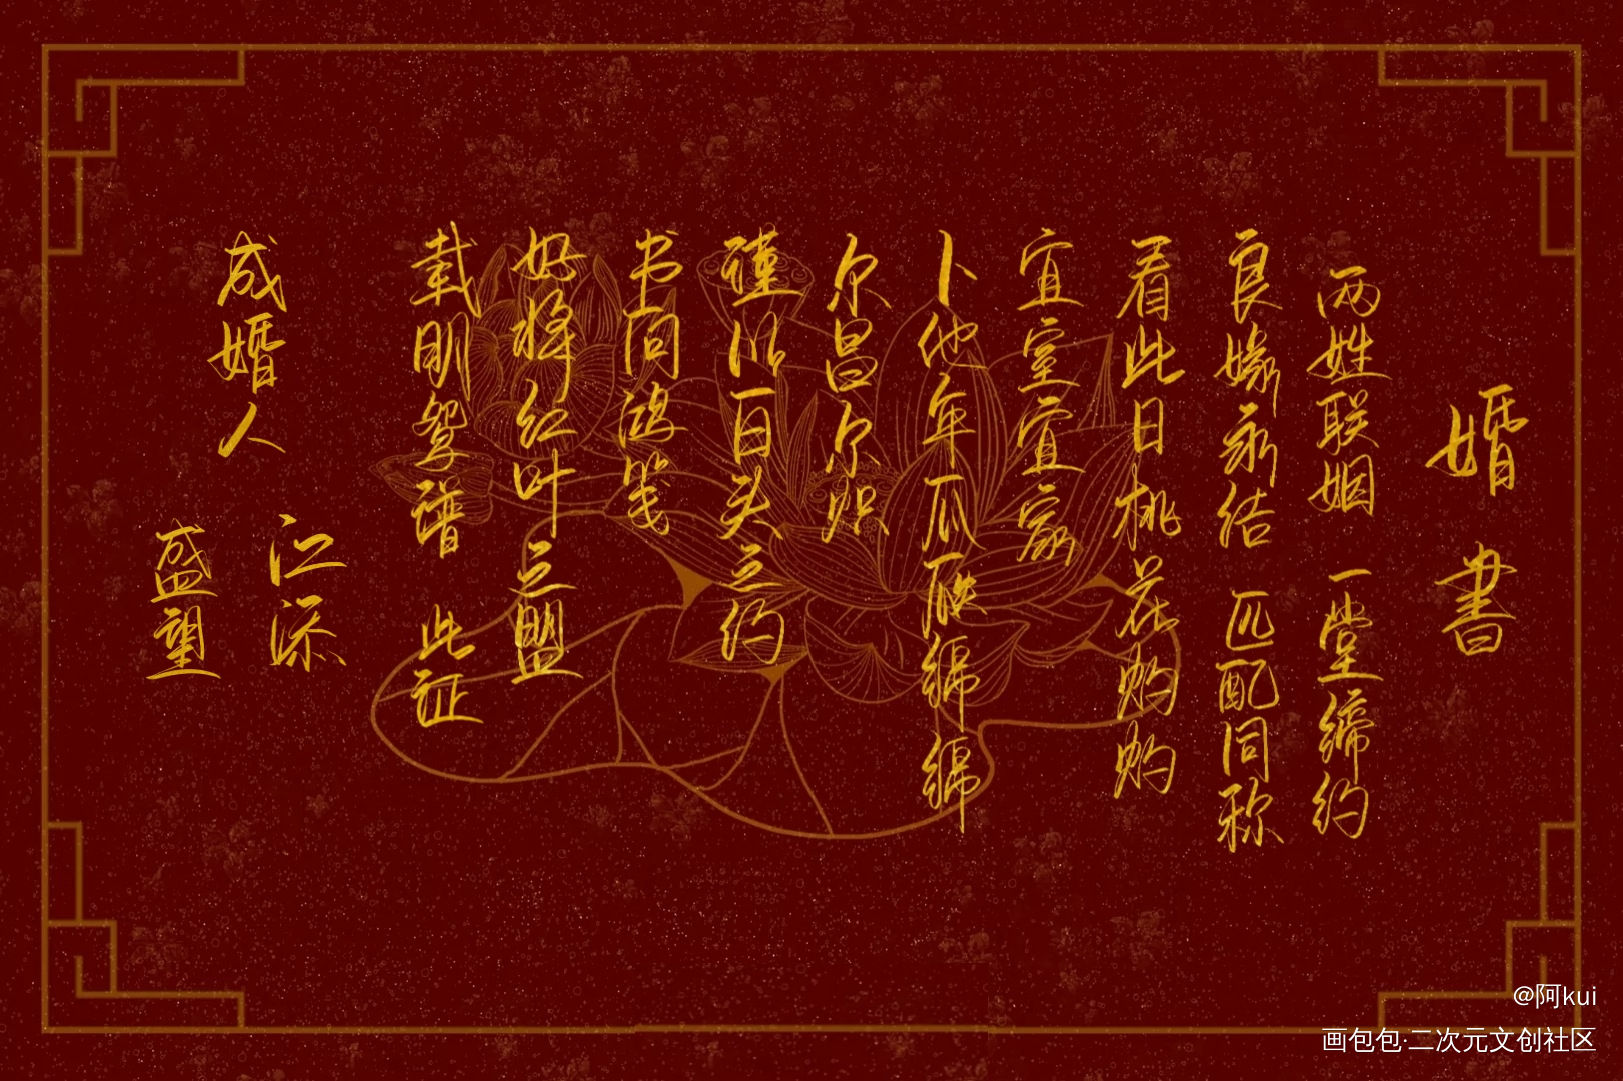 婚書
两姓联姻 一堂缔约
良缘永结 匹配同称
看此日桃花灼灼
宜室宜家
卜他年瓜瓞绵绵
尔昌尔炽
谨以白头之约
书向鸿笺
好将红叶之盟
载明鸳谱 此证
成婚人
江添
盛望
@阿kui
画包包·二次元文创社区